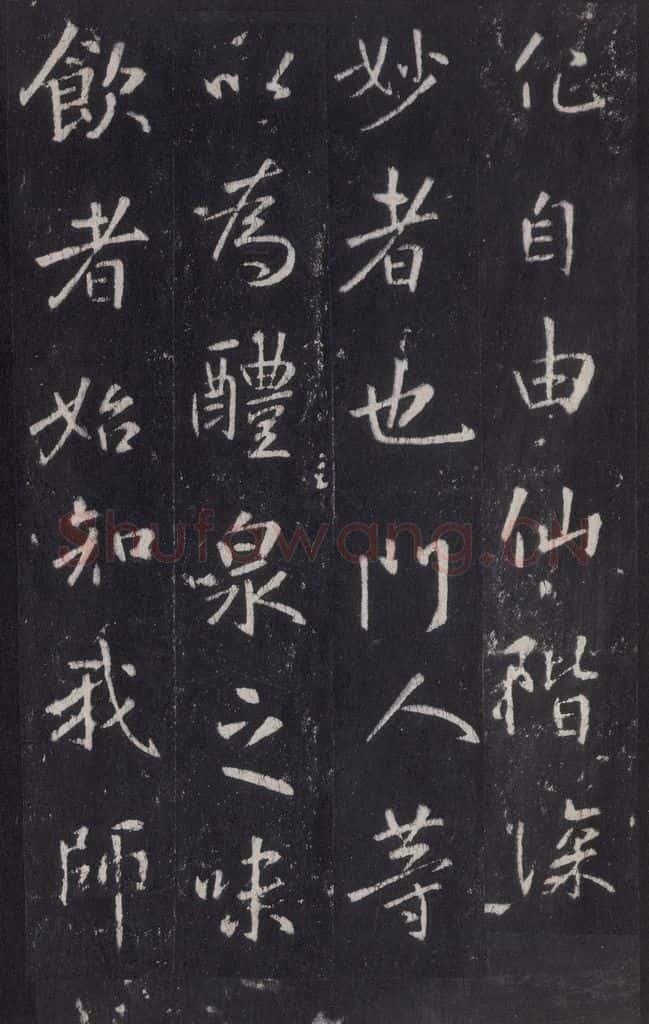 化自由仙階深
妙者也門人等
以為醴泉之味
飲者始知我師
Shufawang.CN